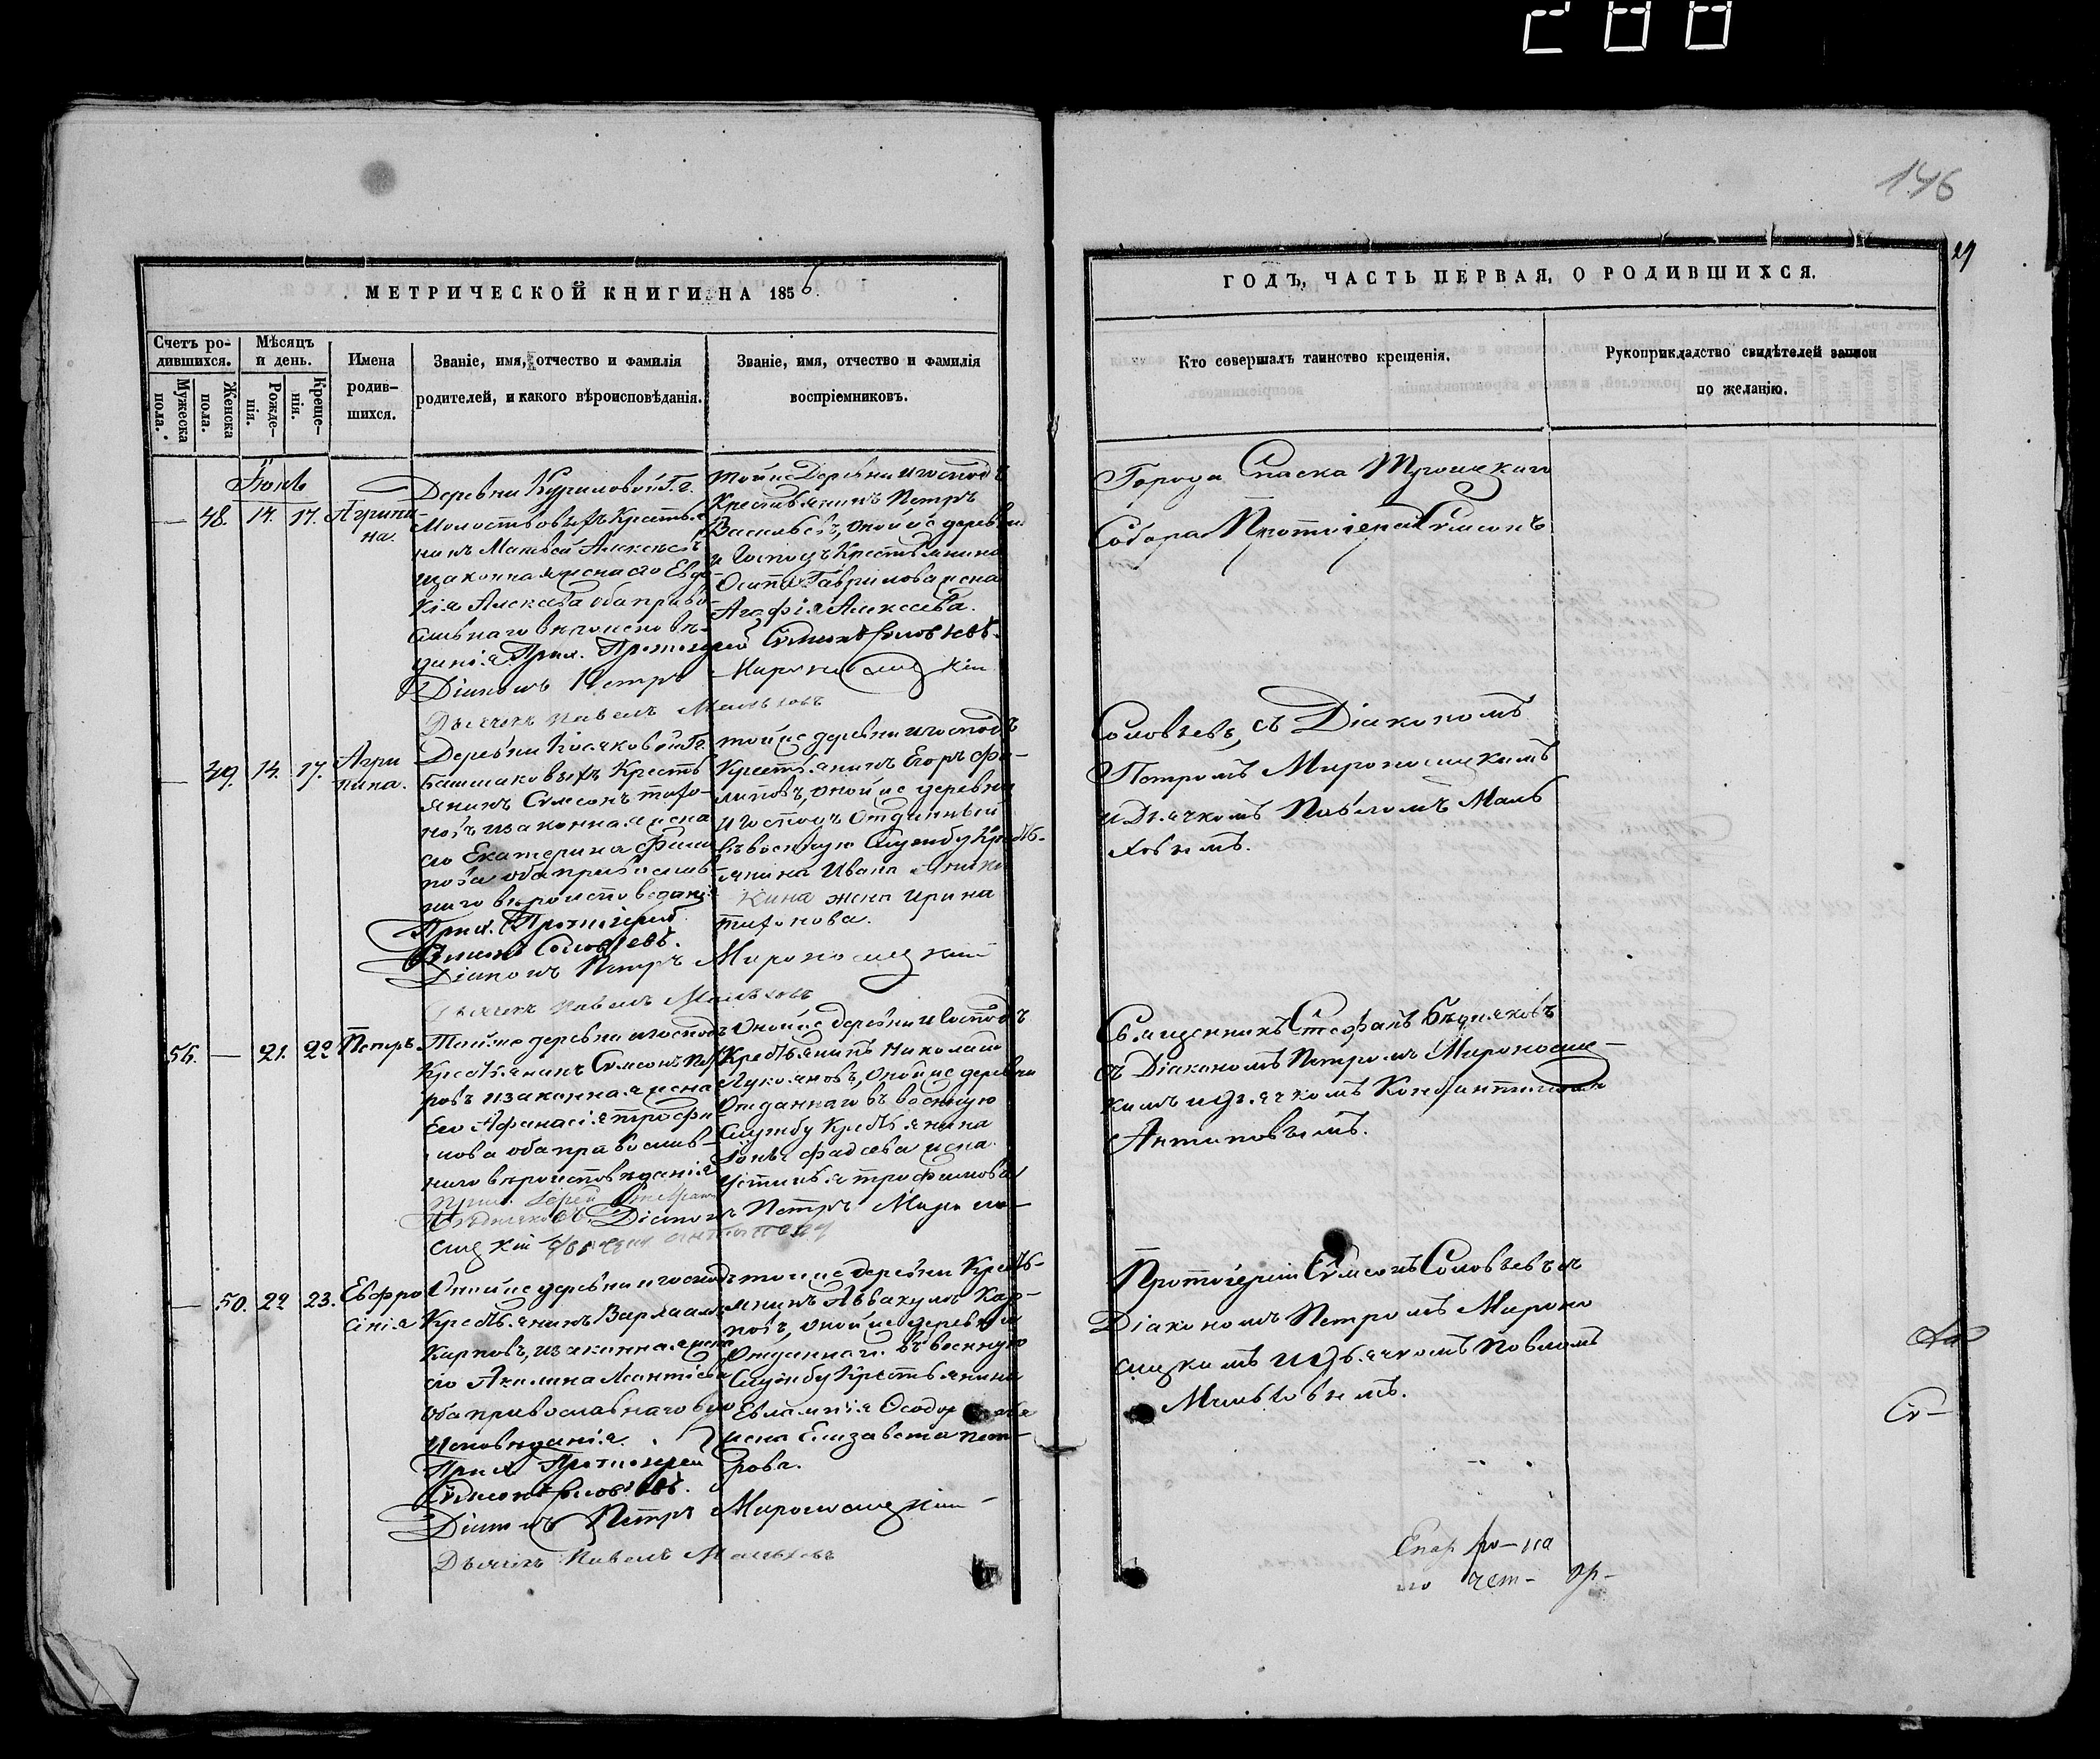 288
146
29
МЕТРИЧЕСКОЙ КНИГИ НА 1856.
ГОДЪ, ЧАСТЬ ПЕРВАЯ, О РОДИВШИХСЯ.
Счетъ родившихся.
Мужеска пола.
Женска пола.
Мѣсяцъ и день.
Рожденія.
Крещенія.
Имена родившихся.
Званіе, имя, отчество и фамилія
родителей, и какого вѣроисповѣданія.
Званіе, имя, отчество и фамилія
воспріемниковъ.
Кто совершалъ таинство крещенія.
Рукоприкладство свидѣтелей записи
по желанію.
Іюнь
— 48. 14. 17. Агрипина.
Деревни Куриловой Г.г.
Молостовыхъ Крестья
нинъ Матвей Алексѣевъ
и законная жена его Евдо
кія Алексѣева оба право-
славнаго вѣроисповѣ-
данія Прих. Протоіерей Сѵмеонъ Соловьевъ.
Діаконъ Петръ Мироносицкій
Дьячекъ Павелъ Мальховъ
тойже Деревни и господъ
Крестьянинъ Петръ
Васильевъ, онойже деревни
и Господъ Крестьянина
Осипа Гаврилова жена
Агафія Алексѣева.
Города Спаска Троицкаго
Собора Протоіерей Сѵмеонъ
Соловьевъ, съ Діакономъ
Петромъ Мироносицкимъ
и Дьячкомъ Павломъ Маль
ховымъ.
— 49. 14. 17. Агри
пина.
Деревни Г.г.
Крестья
янинъ Сѵмеонъ Тихо-
новъ и законная жена
его Екатерина Фили
пова оба православ
наго вѣроисповеданія
Прих. Протоіерей
Сѵмеонъ Соловьевъ.
Діаконъ Петръ Мироносицкій
Дьячекъ Павелъ Мальховъ
тойже деревни и господъ
Крестьянинъ Егоръ Фи-
липовъ, онойже деревни
и Господъ Отданный
въ военную Службу Кресть-
янина Ивана Аники
жена Ирина
Тихонова.
56. — 21. 22 Петръ.
Тойже деревни и господъ
Крестьянинъ Сѵмеонъ
ровъ и законная жена
Его Афанасія Трофи
мова оба православ-
наго вѣроисповѣданія
Прих. Іерей Стефанъ
Бѣдняковъ. Діаконъ Петръ Мироно-
сицкій
Онойже деревни и Господъ
Крестьянинъ Николай
Лукояновъ, онойже деревни
Отданнаго въ военную
Службу Крестьянина
Фадѣева жена
Устинья Трофимова
Священникъ Стефанъ Бѣдняковъ
съ Діакономъ Петромъ Мироносиц-
кимъ и дьячкомъ Константиномъ
Антиповымъ.
— 50. 22 23. Евфро
сінія
Онойже деревни и господъ
Крестьянинъ Варлаамъ
Карповъ, и законная жена
его Акилина Леонтіева
Оба православнаго вѣро
исповѣданія.
Прих. Протоіерей
Сѵмеонъ Соловьевъ.
Діаконъ Петръ Мироносицкій
Дьячекъ Павелъ Мальховъ
тойже деревни Кресть-
янинъ Аввакумъ Кар-
повъ, онойже деревни
Отданнаго въ военную
Службу Крестьянина
Евлампія
жена Елизавета Пет-
рова.
Протоіерей Сѵмеонъ Соловьевъ съ
Діакономъ Петромъ Мироно
сицкимъ и дьячкомъ Павломъ
Мальховымъ.